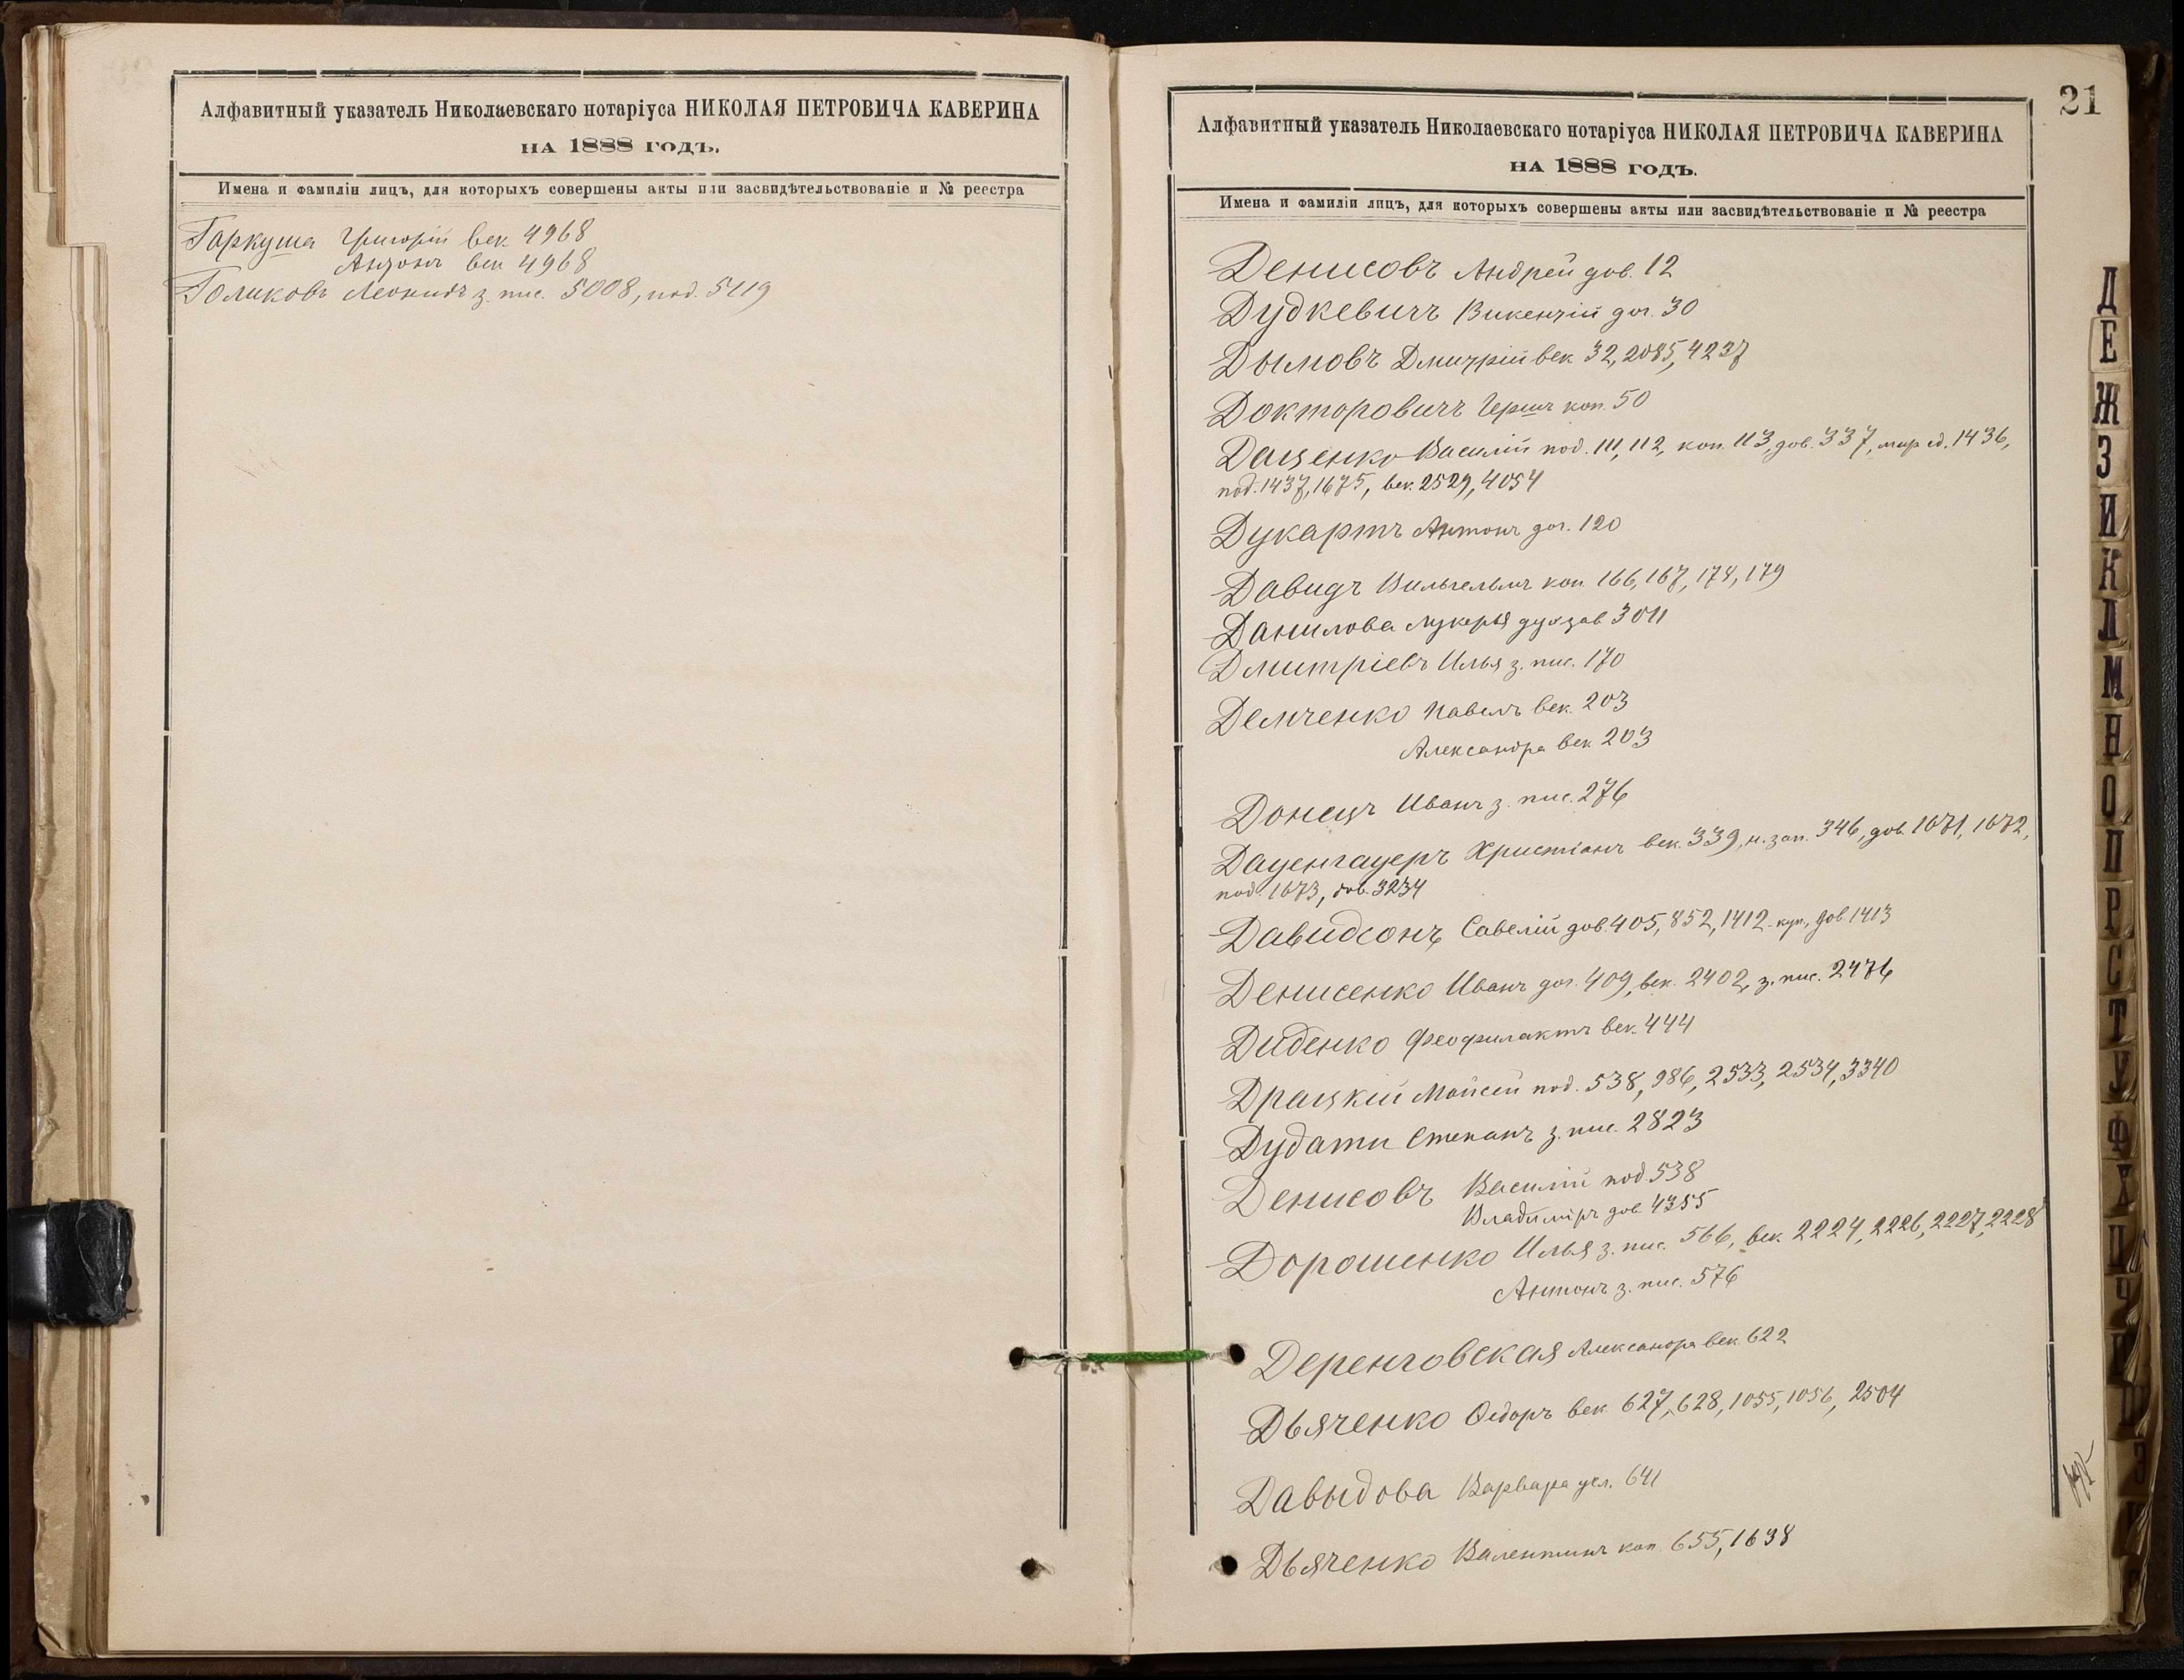 Алфавитный указатель Николаевскаго нотаріуса НИКОЛАЯ ПЕТРОВИЧА КАВЕРИНА
НА 1888 ГОДЪ.
Имена и фамиліи лицъ, для которыхъ совершены акты или засвидѣтельствованіе и № реестра
Гаркуша Григорій век. 4968
Антонъ век 4968
Голиковъ Леонидъ з. пис. 5008, под. 5119
21
Алфавитный указатель Николаевскаго нотаріуса НИКОЛАЯ ПЕТРОВИЧА КАВЕРИНА
НА 1888 ГОДЪ.
Имена и фамиліи лицъ, для которыхъ совершены акты или засвидѣтельствованіе и № реестра
Денисовъ Андрей дов. 12
Дудкевичъ Викентій дог. 30
Дымовъ Дмитрій век 32, 2085, 4237
Докторовичъ Гершъ коп. 50
Даценко Василій под. 111, 112, коп. 113, дов. 337, мир сд. 1436,
под. 1437, 1675, век. 2529, 4054
Дукартъ Антонъ дог. 120
Давидъ Вильгельмъ коп. 166, 167, 174, 179
Данилова Лукерья дух зав 3011
Дмитріевъ Илья з. пис. 170
Демченко Павелъ век. 203
Александра век 203
Донецъ Иванъ з. пис. 276
Дауенгауеръ Христіанъ век. 339, н. зап. 346, дов. 1071, 1072,
под. 1073, дов. 3234
Давидсонъ Савелій дов. 405, 852, 1412 куп., дов. 1413
Денисенко Иванъ дог. 409, век. 2402, з. пис. 2476
Диденко Феофилактъ век. 444
Драцкій Мойсей под. 538, 986, 2533, 2534, 3340
Дудати Степанъ з. пис. 2823
Денисовъ Василій под 538
Владиміръ дов 4355
Дорошенко Илья з. пис. 566, век. 2224, 2226, 2227, 2228
Антонъ з. пис. 576
Деренговская Александра век. 622
Дьяченко Ѳедоръ век 627, 628, 1055, 1056, 2504
Давыдова Варвара 641
Дьяченко Валентинъ коп. 655, 1638
Д
Е
Ж
З
И
К
Л
М
Н
О
П
Р
С
Т
У
Ф
Х
Ц
Ч